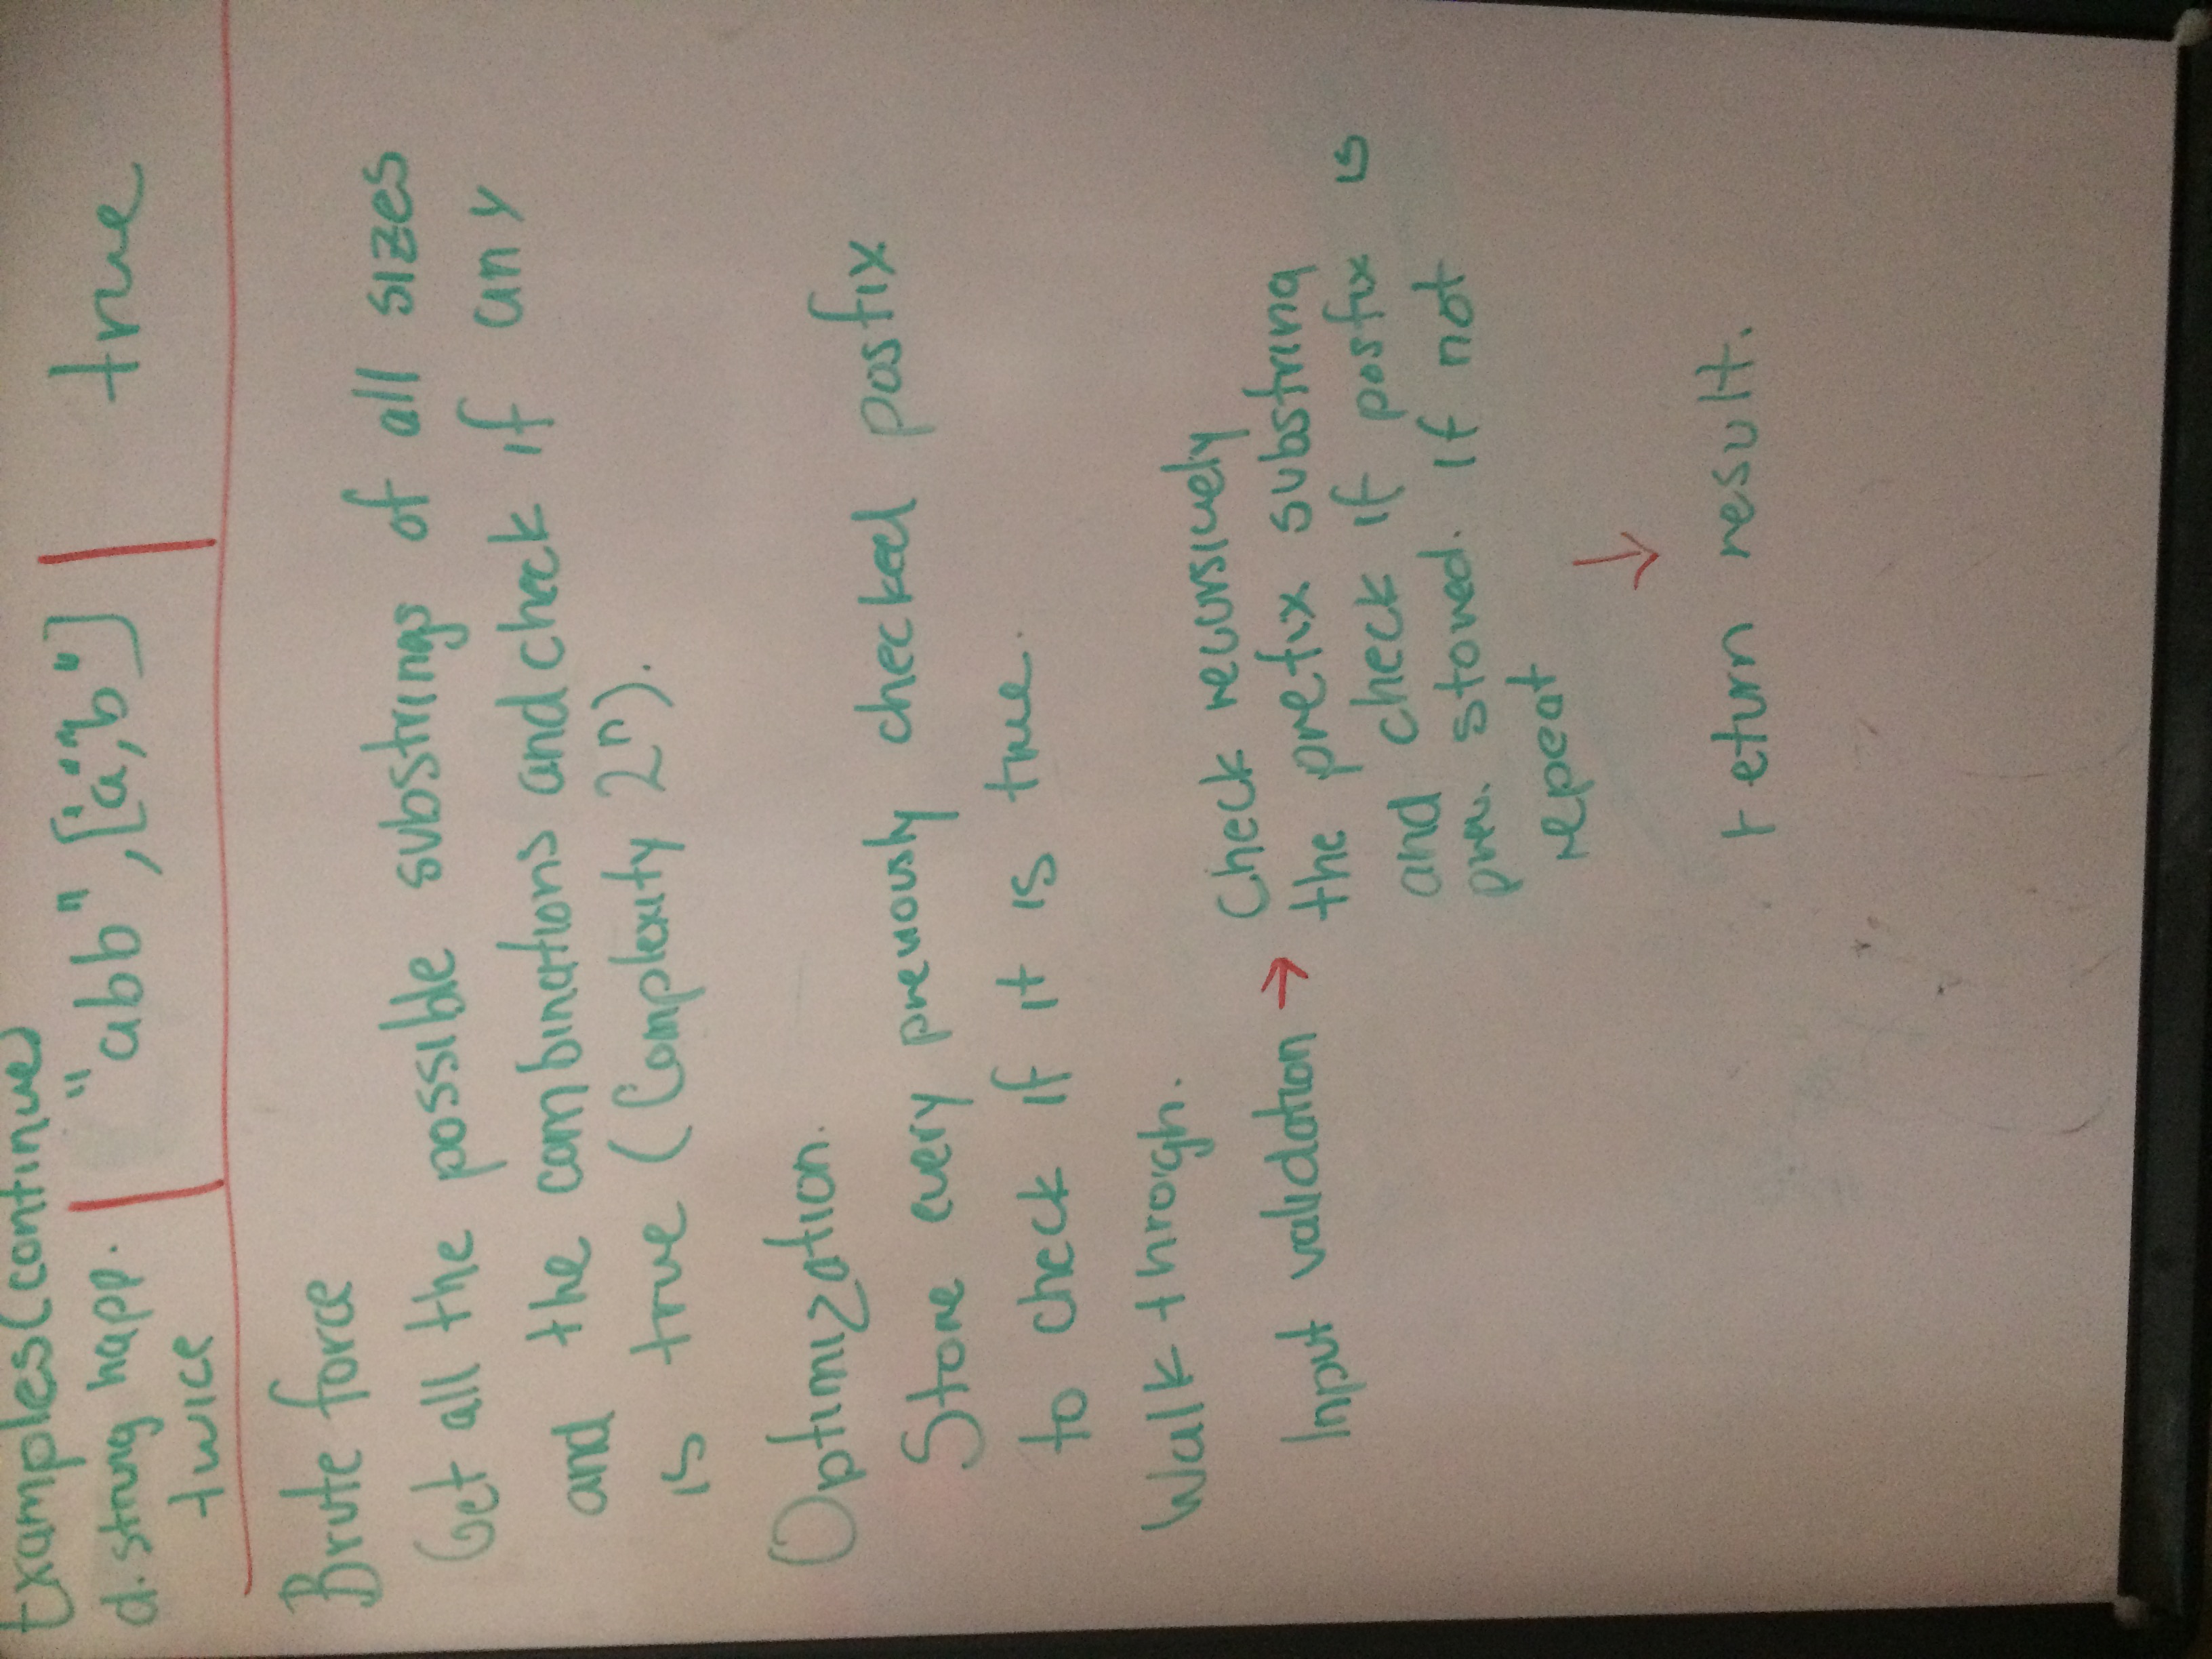 Examples (continue)
d. string happ. "abb", ["a","b"] true
twice
Brute force
Get all the possible substrings of all sizes
and the combinations and check if any
is true (Complexity 2ⁿ).
Optimization.
Store every previously checked posfix
to check if it is true.
Walk throigh.
Input validation → Check recursively
the prefix substring
and check if posfix is
prev. stored. If not
repeat
↓
return result.